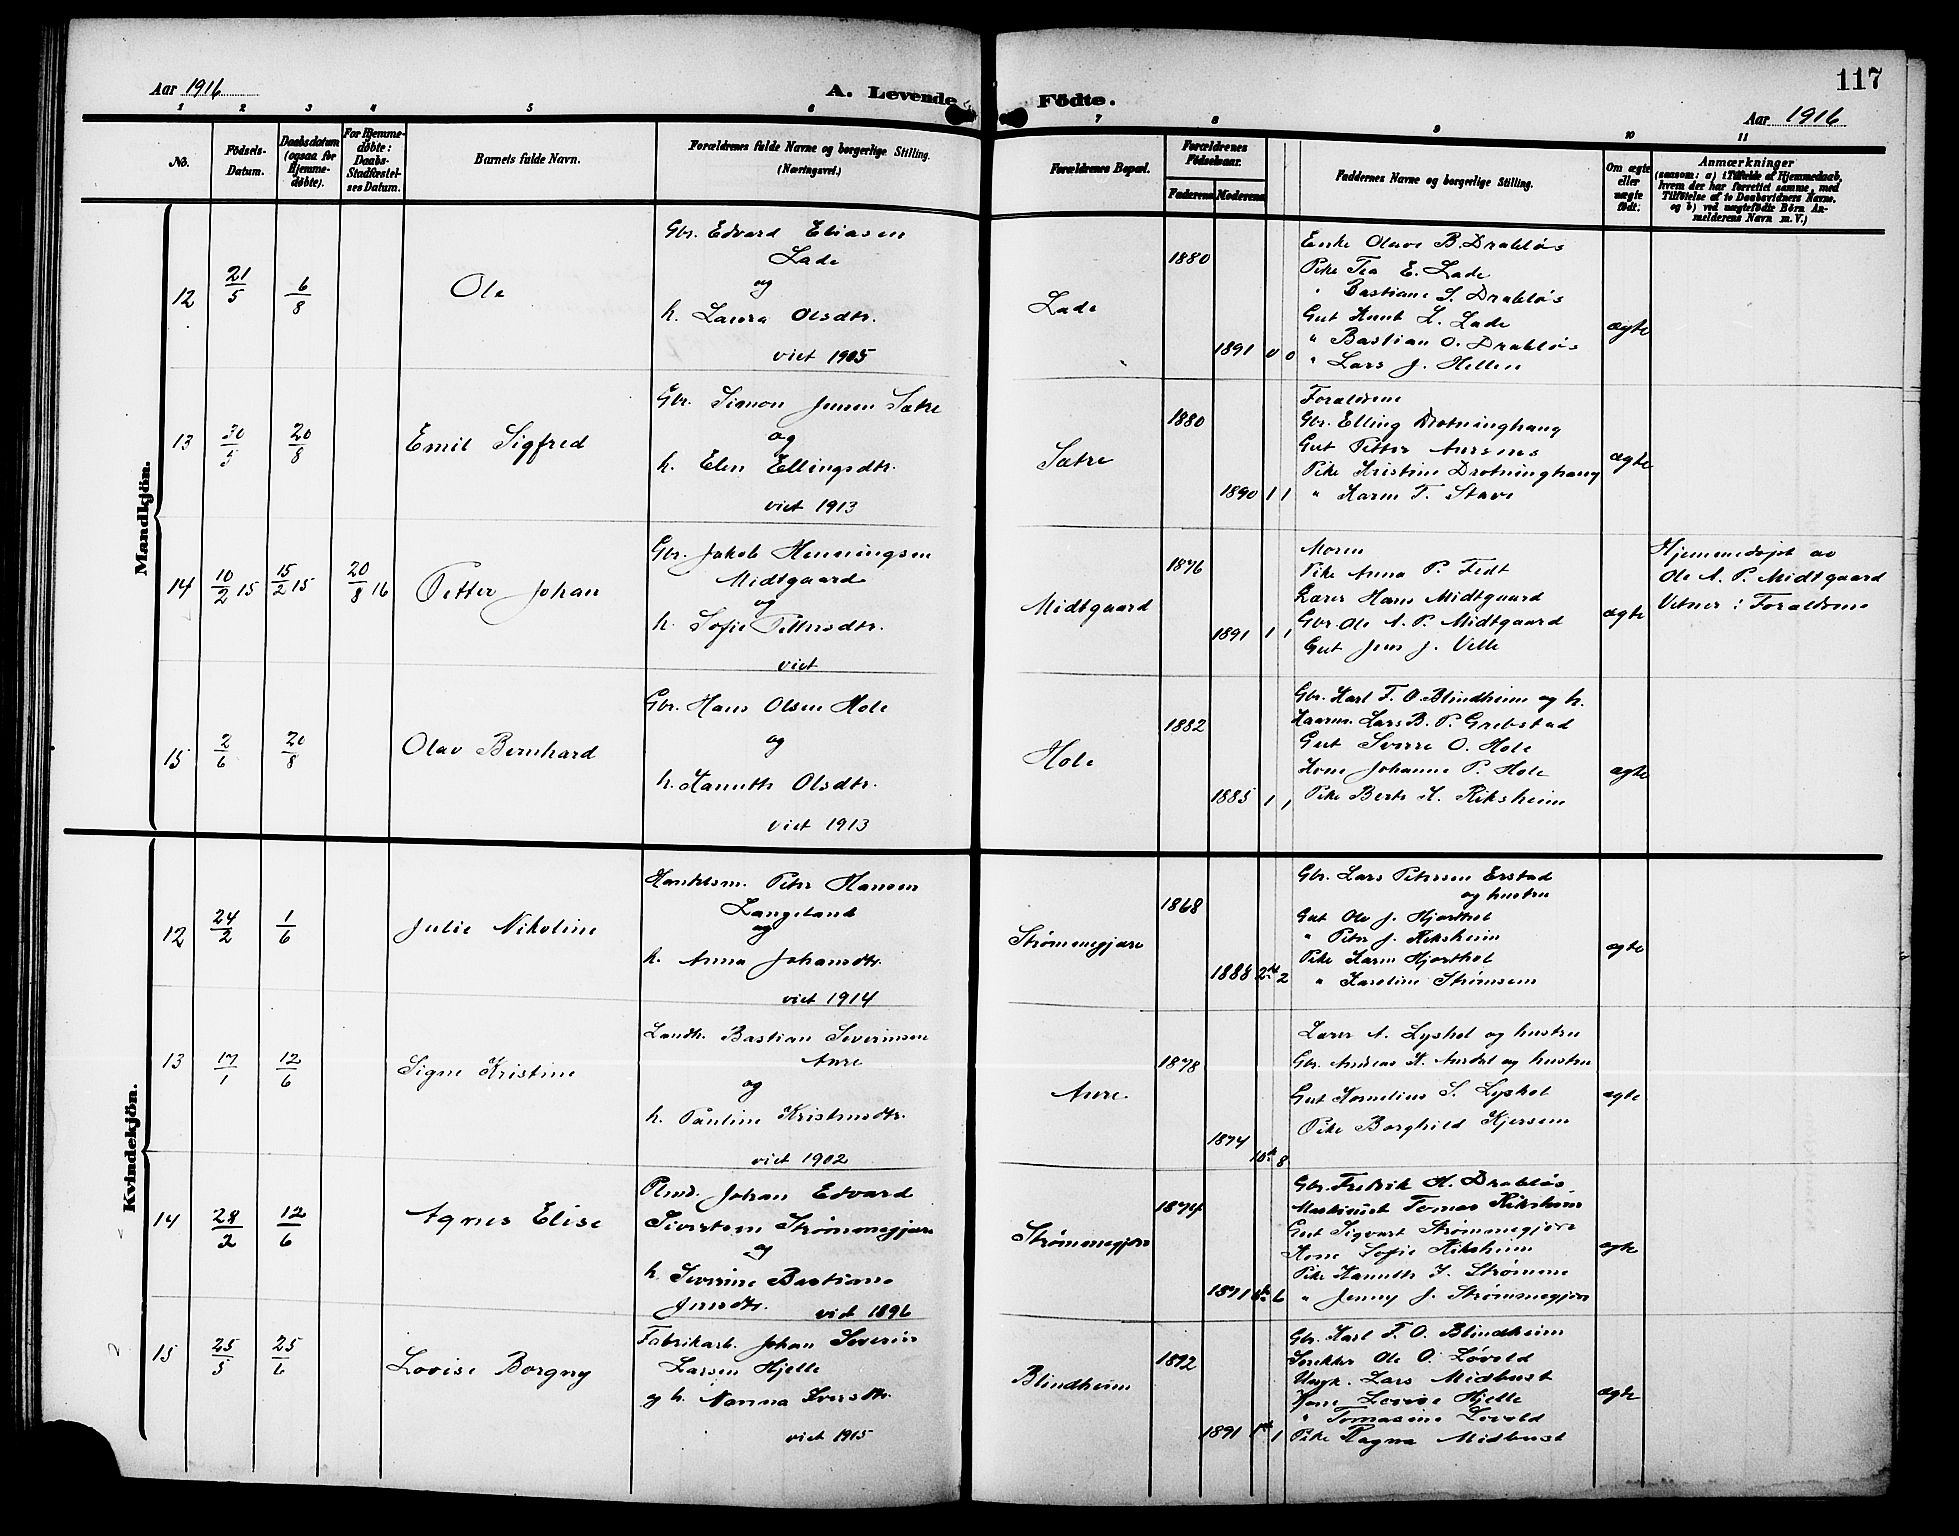 Aar 1916
A. Levende Födte.
117
Aar 1916
1 2 3 4 5 6 7 8 9 10 11
No.
Födsels-Datum.
Daabsdatum (ogsaa for Hjemme-döbte).
For Hjemme-döbte: Daabs-Stadfæstel-ses Datum.
Barnets fulde Navn.
Forældrenes fulde Navne og borgerlige Stilling. (Næringsvei.)
Forældrenes Bopæl.
Forældrenes Födselsaar.
Faderens
Moderens
Faddernes Navne og borgerlige Stilling.
Om ægte eller uægte födt.
Anmærkninger
(saasom: a) i Tilfælde af Hjemmedaab,
hvem der har forrettet samme, med
Tilföielse af to Daabsvidners Navne,
og b) ved uægtefödte Börn An-
melderens Navn m. V.)
Mandkjön.
12 21/5 6/8 Ole
Gbr. Edvard Eliasen
Lade
og
h. Laura Olsdtr.
viet 1905
Lade 1880 1891 0 0
Enke Olave B. Drabløs
Pike Tea E. Lade
" Bastiane S. Drabløs
Gut Knut L. Lade
" Bastian O. Drabløs
" Lars J. Hellen
ægte
13 30/5 20/8 Emil Sigfred
Gbr. Simon Jensen Sætre
og
h. Elen Ellingsdtr.
viet 1913
Sætre 1880 1890 1 1
Forældrene
Gbr. Elling Drotninghaug
Gut Petter Aursnes
Pike Kristine Drotninghaug
" Karen T. Stave
ægte
14 10/2 15 15/2 15 20/8 16 Petter Johan
Gbr. Jakob Henningsen
Midtgaard
og
h. Sofie Pettersdtr.
viet
Midtgaard 1876 1891 1 1
Moren
Pike Anna P. Fedt
Lærer Hans Midtgaard
Gbr. Ole A. P. Midtgaard
Gut Jens J. Velle
ægte
Hjemmedøpt av
Ole A. P. Midtgaard
Vitner: Forældrene
15 2/6 20/8 Olav Bernhard
Gbr. Hans Olsen Hole
og
h. Hanette Olsdtr.
viet 1913
Hole 1882 1885 1 1
Gbr. Karl F. O. Blindheim og h.
Lars B. P. Grebstad
Gut Sverre O. Hole
Kone Johanne P. Hole
Pike Berte K. Riksheim
ægte
Kvindekjön.
12 24/2 1/6 Julie Nikoline
Handelsm. Peter Hansen
Langeland
og
h. Anna Johansdtr.
viet 1914
Strømmegjære 1868 1888 2 2
Gbr. Lars Petersen Erstad
og hustru
Gut Ole J. Hjorthol
" Peter J. Riksheim
Pike Karen Hjorthol
" Karoline Strømsem
ægte
13 17/1 12/6 Signe Kristine
Landh. Bastian Severinsen
Aure
og
h. Pauline Kristensdtr.
viet 1902
Aure. 1878 1874 10 8
Lærer A. Lyshol og hustru
Gbr. Andreas K. Aurdal og hustru
Gut Kornelius S. Lyshol
Pike Borghild Hjersem
ægte
14 28/2 12/6 Agnes Elise
Johan Edvard
Sivertsen Strømmegjære
og
h. Severine Bastiane
Jensdtr. viet 1896
Strømmegjære 1874 1871 6 6
Gbr. Fredrik H. Drabløs
Maskinist Tomas Riksheim
Gut Sigvart Strømmegjære
Kone Sofie Riksheim
Pike Hanette J. Strømme
" Jenny J. Strømmegjære
ægte
15 25/5 25/6 Lovise Borgny
Fabrikarb. Johan Severin
Larsen Hjelle
og h. Nanna Iversdtr.
viet 1915
Blindheim 1892 1891 1 1
Gbr. Karl F. O. Blindheim
Snekker Ole O. Løvold
Ungk. Lars Midbust
Kone Lovise Hjelle
" Tomasine Løvold
Pike Ragna Midbust
ægte